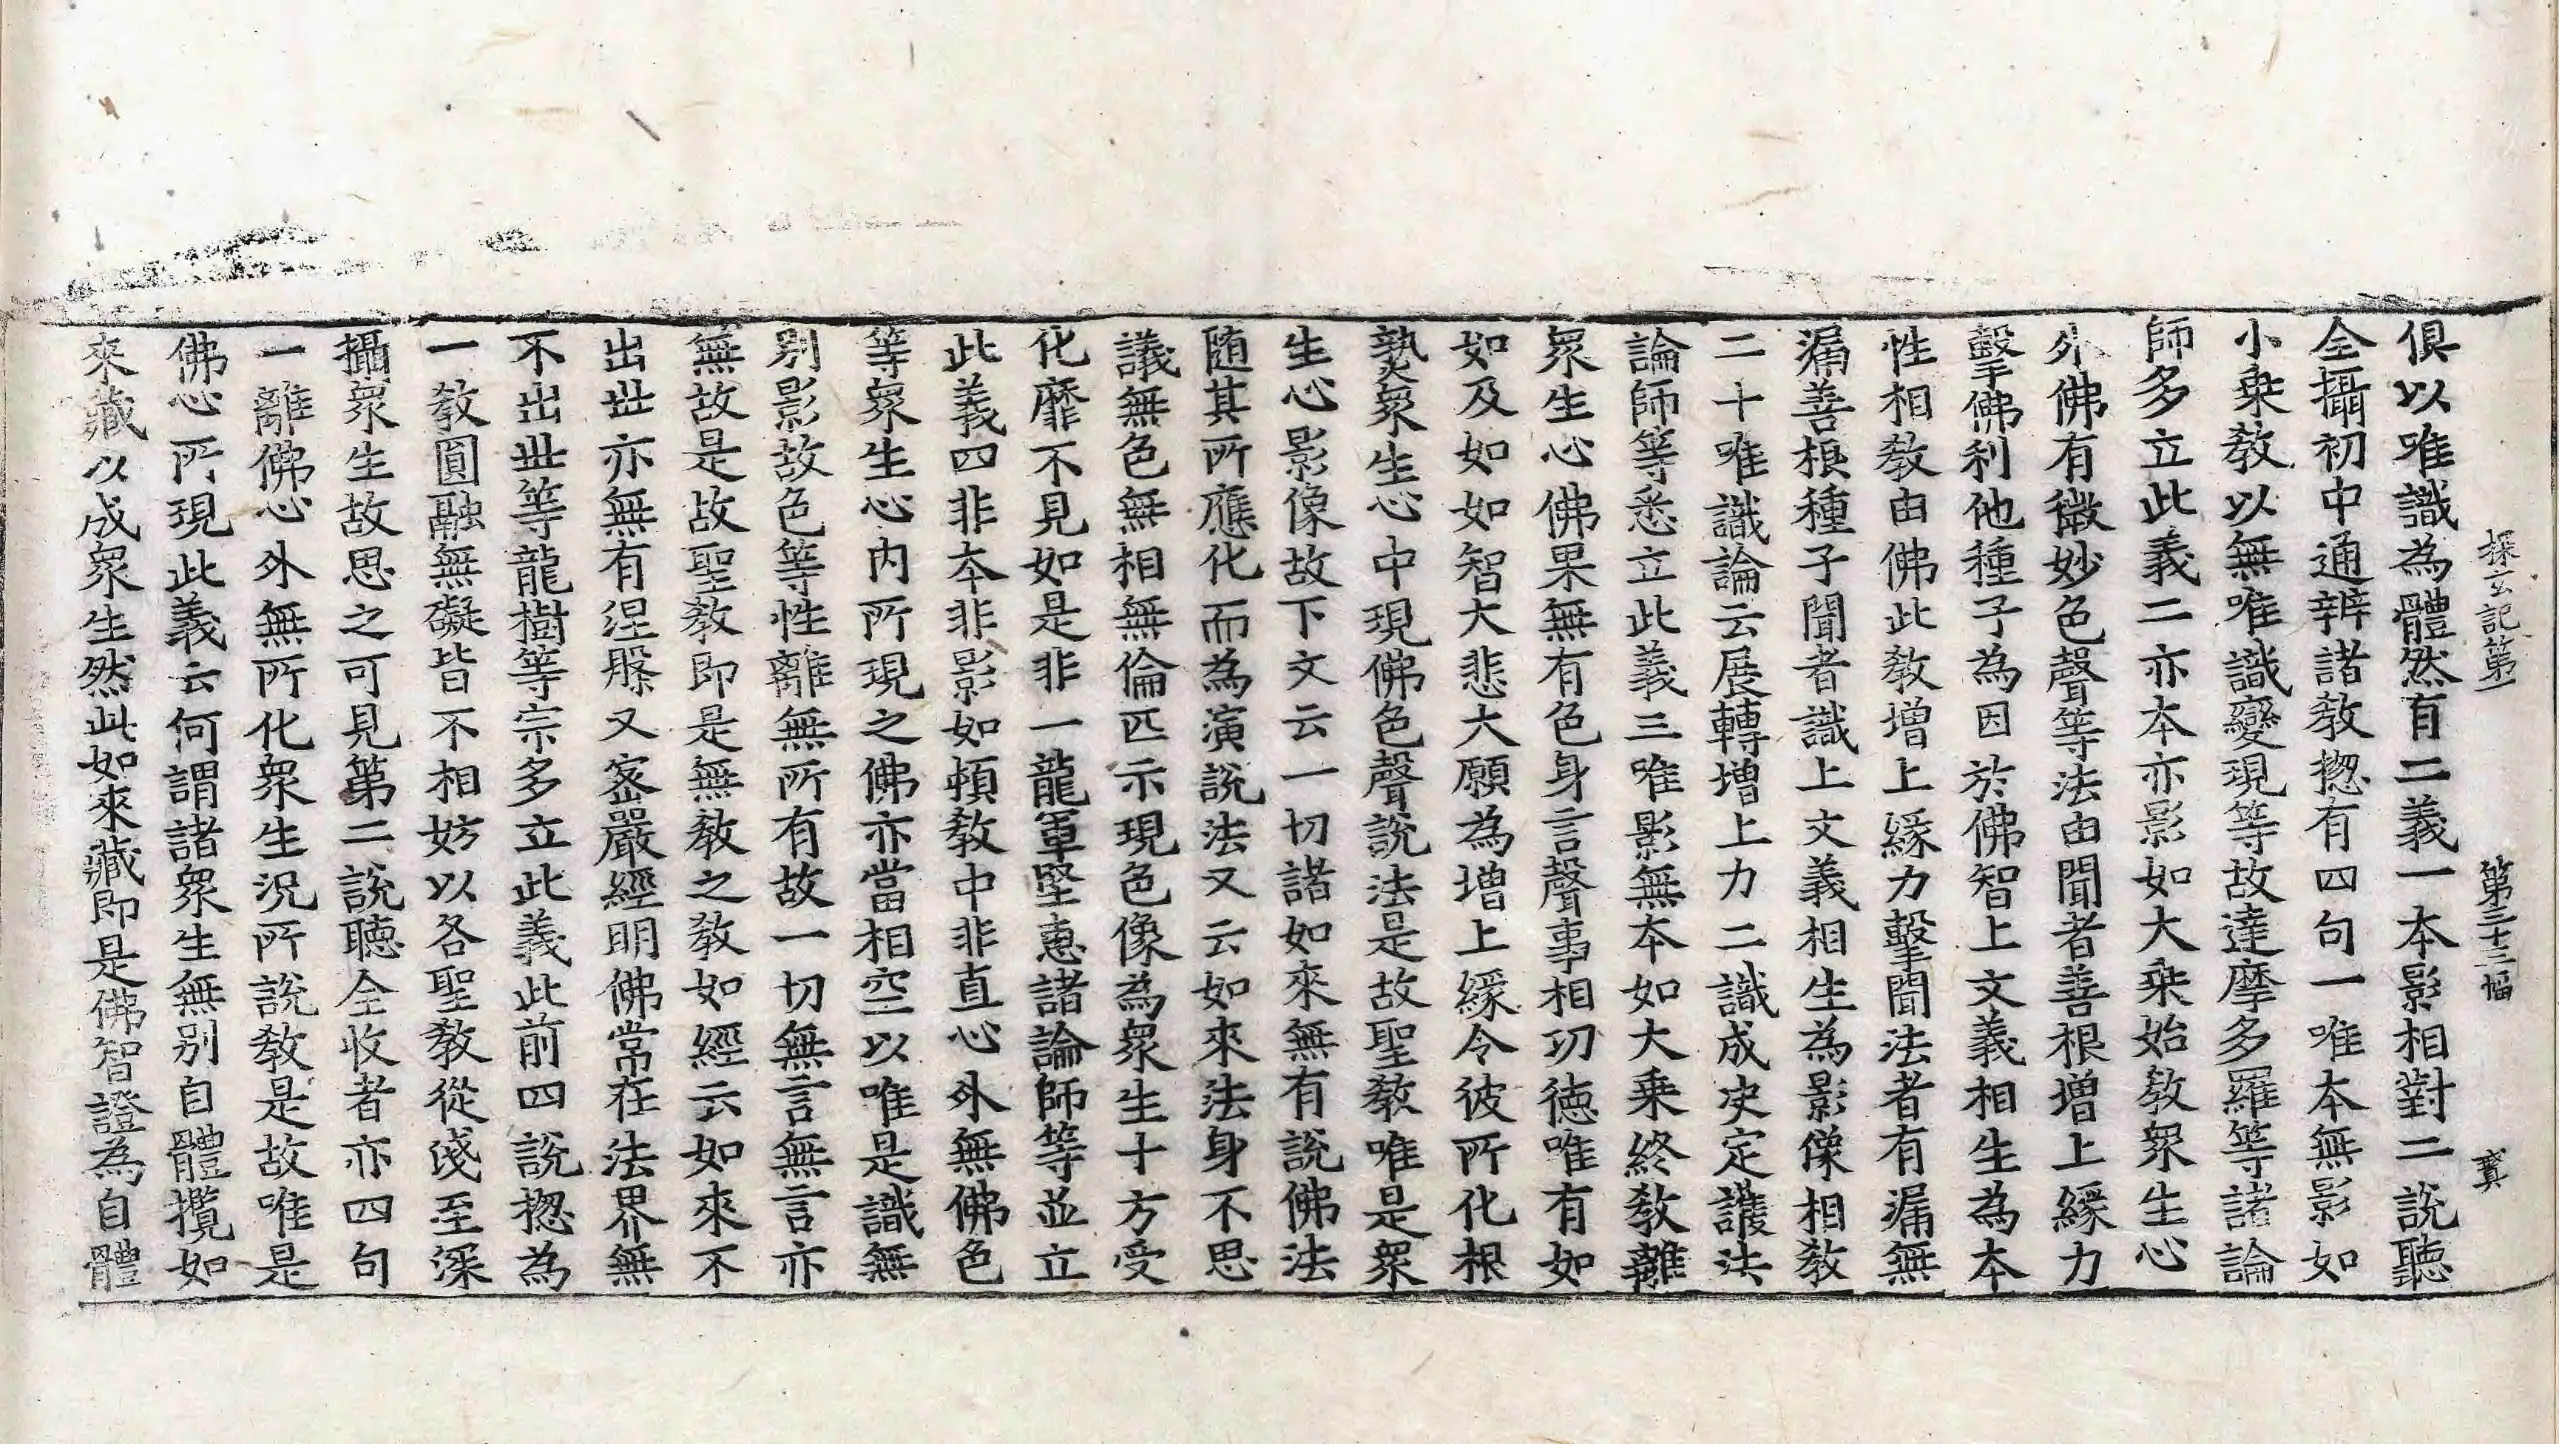 探玄記第一 第三十三幅 寳
俱以唯識為體然有二義一本影相對二說聽
全攝初中通辨諸教揔有四句一唯本無影如
小乗教以無唯識變現等故達摩多羅等諸論
師多立此義二亦本亦影如大乗始教衆生心
外佛有微妙色聲等法由聞者善根增上緣力
擊佛利他種子為因於佛智上文義相生為本
性相教由佛此教增上緣力擊聞法者有漏無
漏善根種子聞者識上文義相生為影像相教
二十唯識論云展轉增上力二識成决定護法
論師等悉立此義三唯影無本如大乗終教離
衆生心佛果無有色身言聲事相功徳唯有如
如及如如智大悲大願為增上緣令彼所化根
𤍠衆生心中現佛色聲說法是故聖教唯是衆
生心影像故下文云一切諸如來無有說佛法
随其所應化而為演說法又云如來法身不思
議無色無相無倫匹示現色像為衆生十方受
化靡不見如是非一龍軍堅惠諸論師等並立
此義四非本非影如頓教中非直心外無佛色
等衆生心内所現之佛亦當相空以唯是識無
别影故色等性離無所有故一切無言無言亦
無故是故聖教即是無教之教如經云如來不
出世亦無有涅槃又密嚴經明佛常在法界無
不出世等龍樹等宗多立此義此前四說揔為
一教圓融無礙皆不相妨以各聖教從浅至深
攝衆生故思之可見第二說聽全收者亦四句
一離佛心外無所化衆生况所說教是故唯是
佛心所現此義云何謂諸衆生無别自體攬如
來藏以成衆生然此如來藏即是佛智證為自體